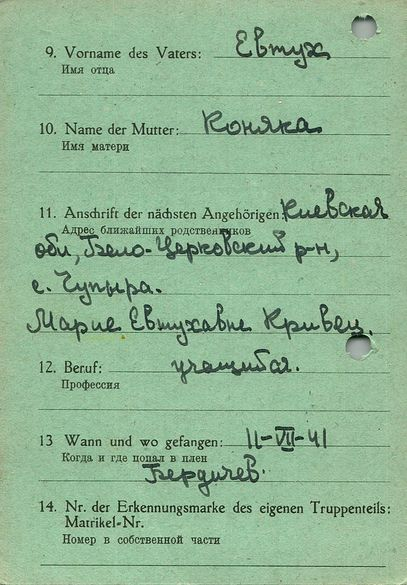 9. Vorname des Vaters: Евтух
Имя отца
10. Name der Mutter: Коняка
Имя матери
11. Anschrift der nächsten Angehörigen: Киевская
Адрес ближайших родственников
обл, Бело-Церковский р-н,
с. Чупыра.
Марие Евтухавне Кривец.
12. Beruf: учащийся.
Профессия
13 Wann und wo gefangen: 11-VII-41
Когда и где попал в плен
Бердичев.
14. Nr. der Erkennungsmarke des eigenen Truppenteils:
Matrikel-Nr.
Номер в собственной части